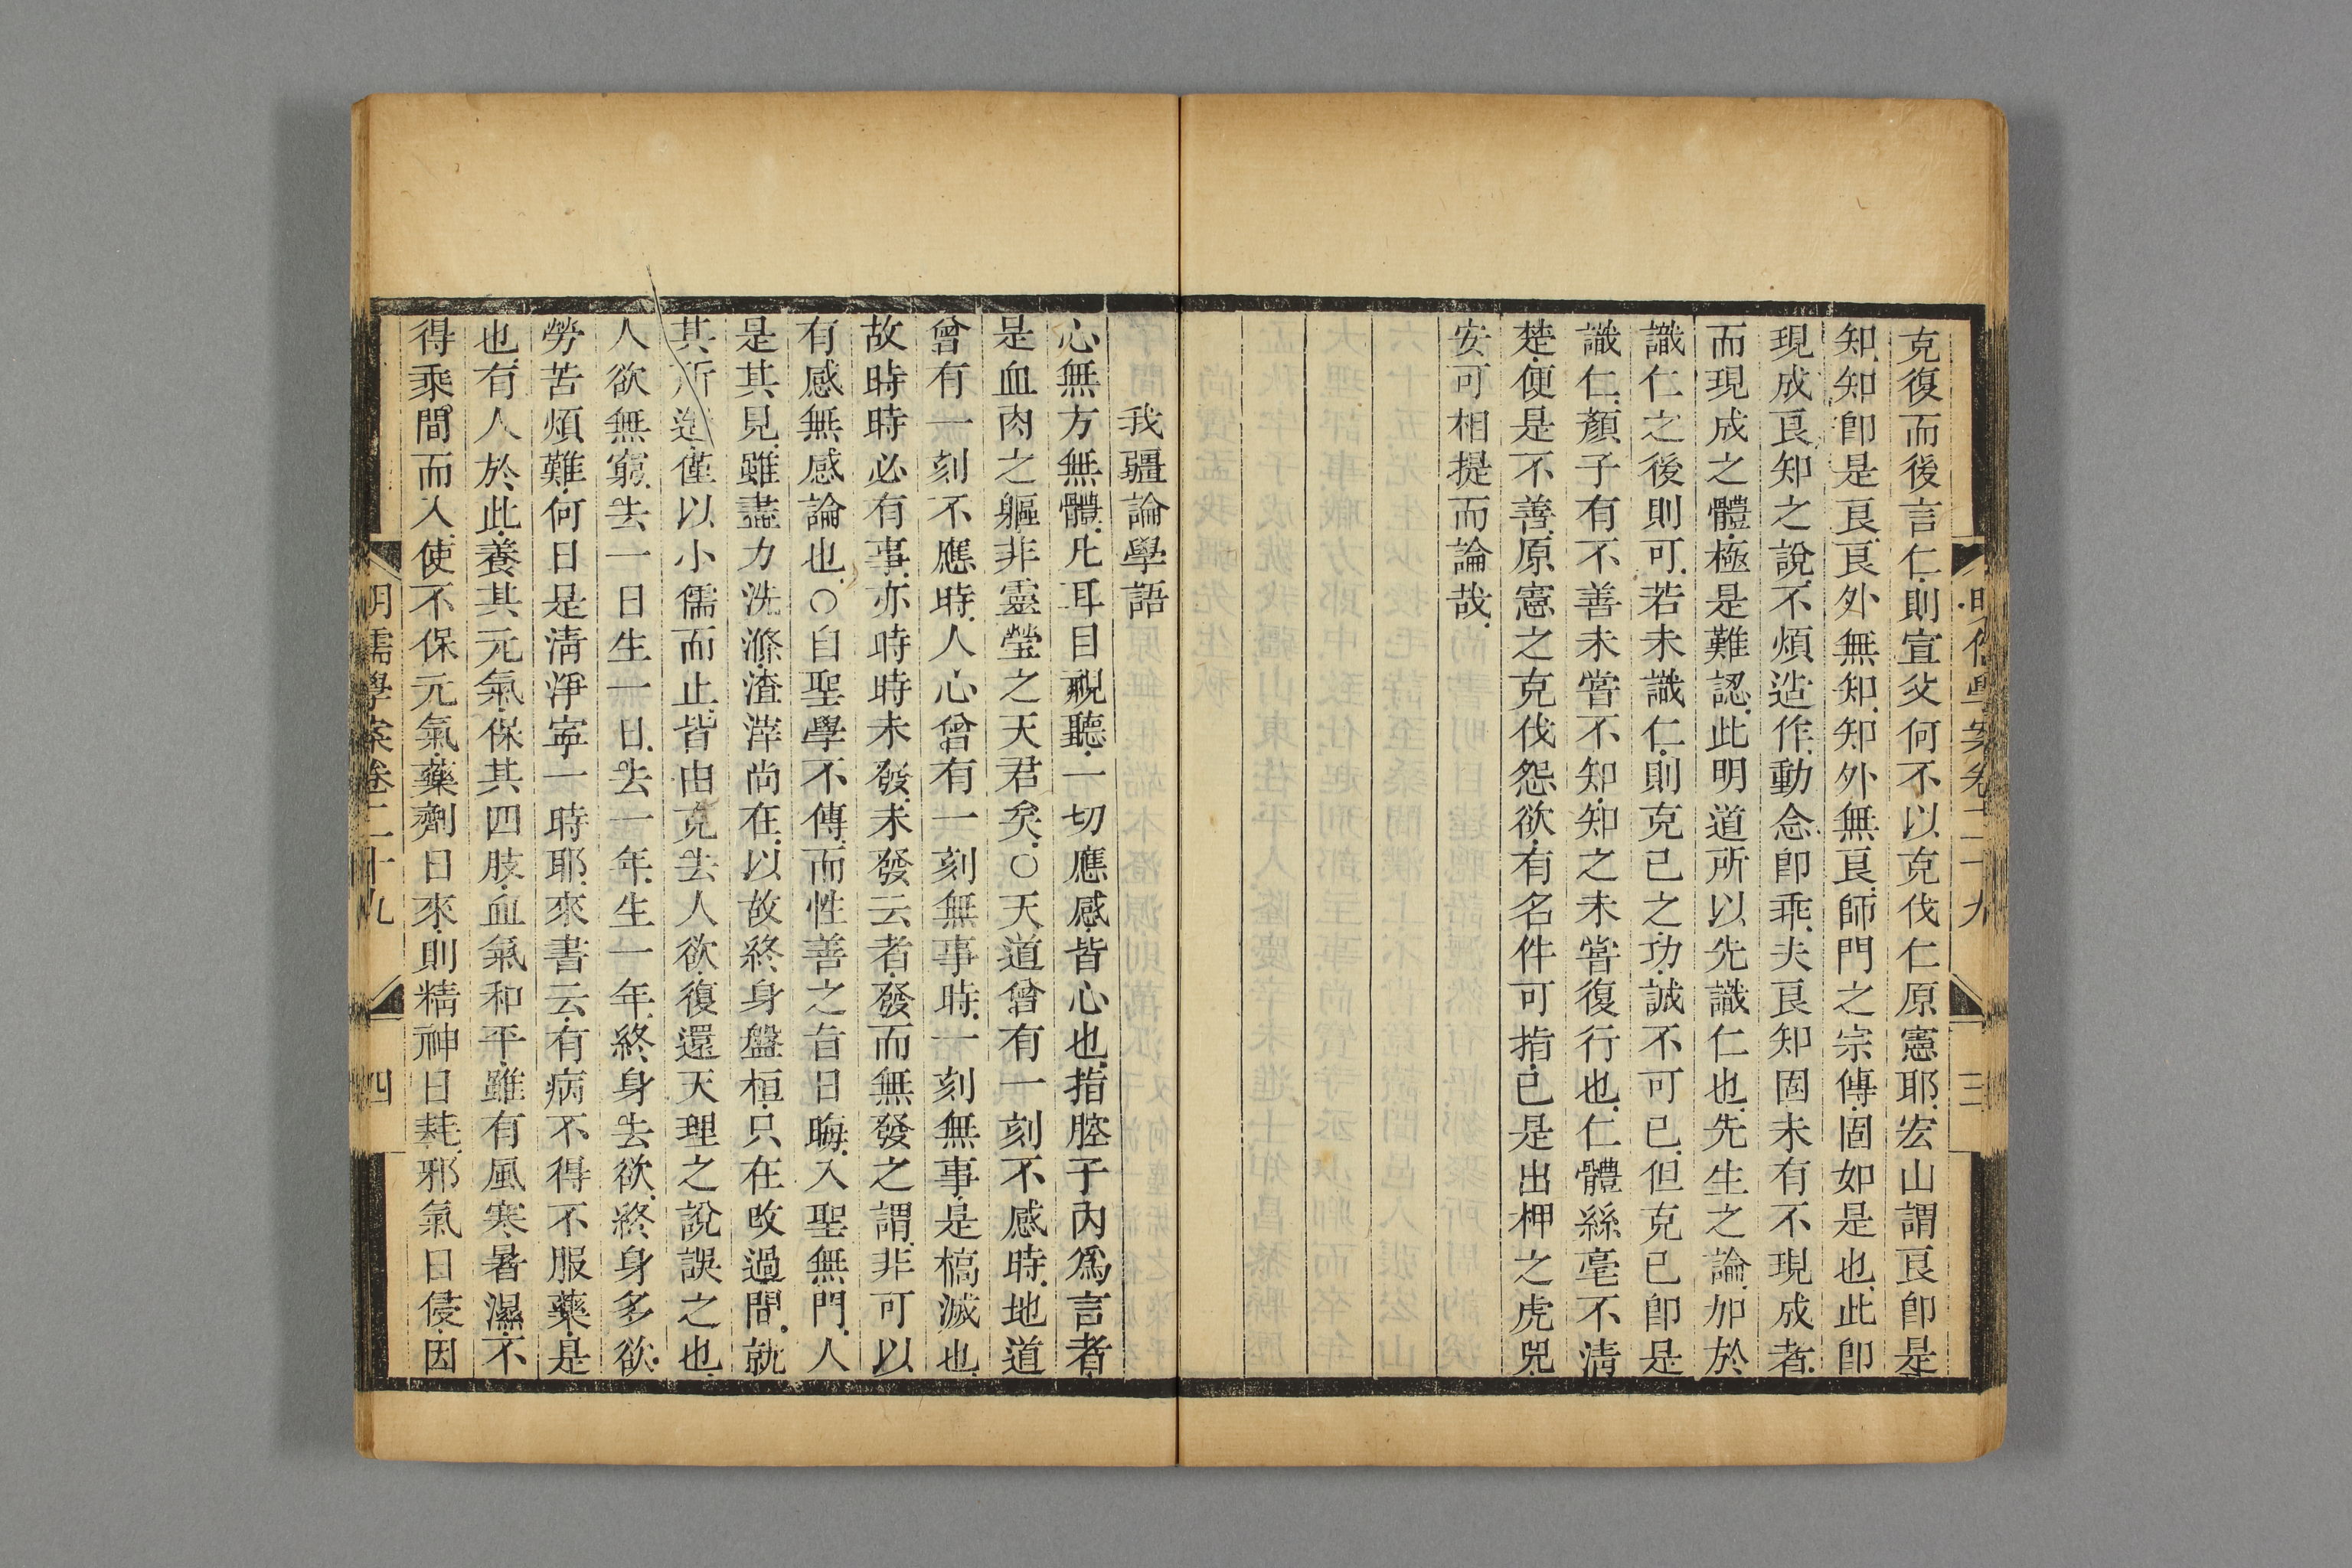 克復而後言仁則宣父何不以克伐仁原憲耶宏山謂良卽是
知知卽是良良外無知知外無良師門之宗傳固如是也此卽
現成良知之說不煩造作動念卽乖夫良知固未有不現成者
而現成之體極是難認此明道所以先識仁也先生之論加於
識仁之後則可若未識仁則克已之功誠不可已但克已卽是
識仁顏子有不善未嘗不知知之未嘗復行也仁體絲毫不淸
楚便是不善原憲之克伐怨欲有名件可指已是出柙之虎兕
安可相提而論哉
明儒學案卷二十九
三
我疆論學語
心無方無體凡耳目視聽一切應感皆心也指腔子內爲言者
是血肉之軀非靈瑩之天君矣○天道曾有一刻不感時地道
曾有一刻不應時人心曾有一刻無事時一刻無事是槁滅也
故時時必有事亦時時未發未發云者發而無發之謂非可以
有感無感論也○自聖學不傳而性善之旨日晦入聖無門人
是其見雖盡力洗滌渣滓尚在以故終身盤桓只在改過間就
其所造僅以小儒而止皆由克去人欲復還天理之說誤之也
人欲無窮去一日生一日去一年生一年終身去欲終身多欲
勞苦煩難何日是淸淨寧一時耶來書云有病不得不服藥是
也有人於此養其元氣保其四肢血氣和平雖有風寒暑濕不
得乘間而入使不保元氣藥劑日來則精神日耗邪氣日侵因
明儒學案卷二十九
四